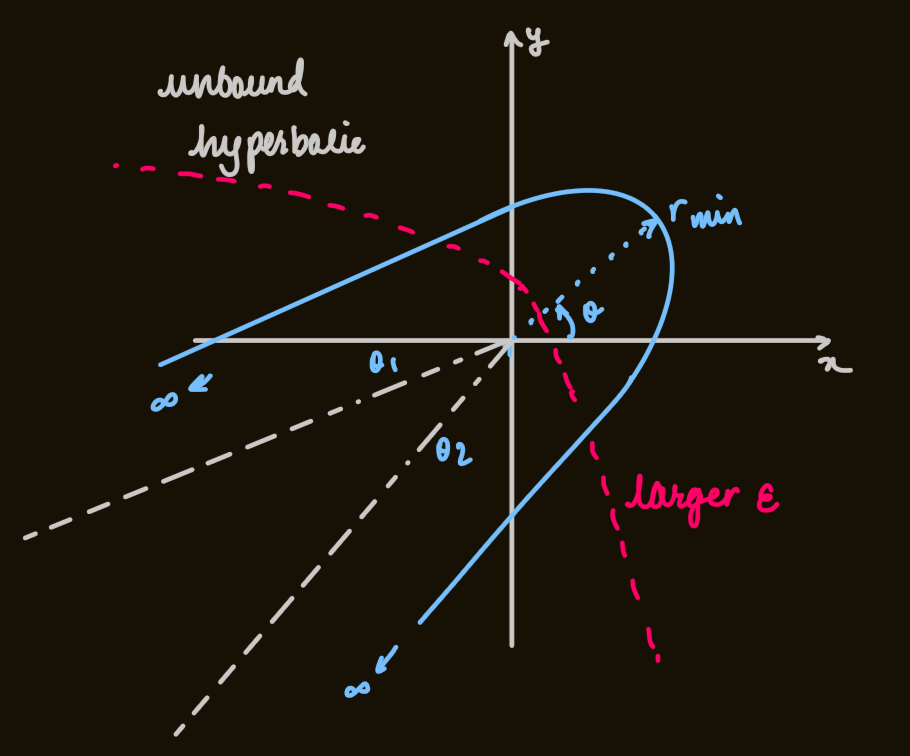 y
unbound
hyperbolic
r min
θ
x
θ1
∞
θ2
larger ε
∞